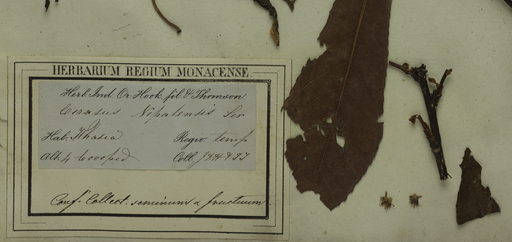 HERBARIUM REGIUM MONACENSE.
Herb. Ind. Or. Hook. fil. & Thomson
Cerasus Nipalensis Ser
Hab. Khasia Regio temp
Alt. 4-6000 ped Coll. J.D.H. & T.T.
Conf. Collect. seminum & fructuum.